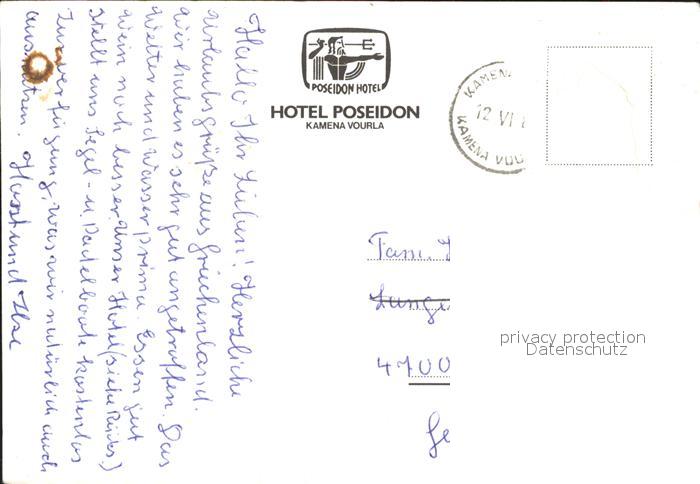 Hallo Ihr Lieben! Herzliche
Urlaubsgrüße aus Griechenland.
Wir haben es sehr gut angetroffen. Das
Wetter und Wasser prima. Essen gut
Wein noch besser. Unser Hotel (siehe Rücks.)
stellt uns Segel- u. Paddelboote kostenlos
zur Verfügung, was wir natürlich auch
ausnützen. Horst und Ilse
POSEIDON HOTEL
HOTEL POSEIDON
KAMENA VOURLA
KAMENA
12 VI
KAMENA VOU
Fam.
Lange
4700
privacy protection
Datenschutz